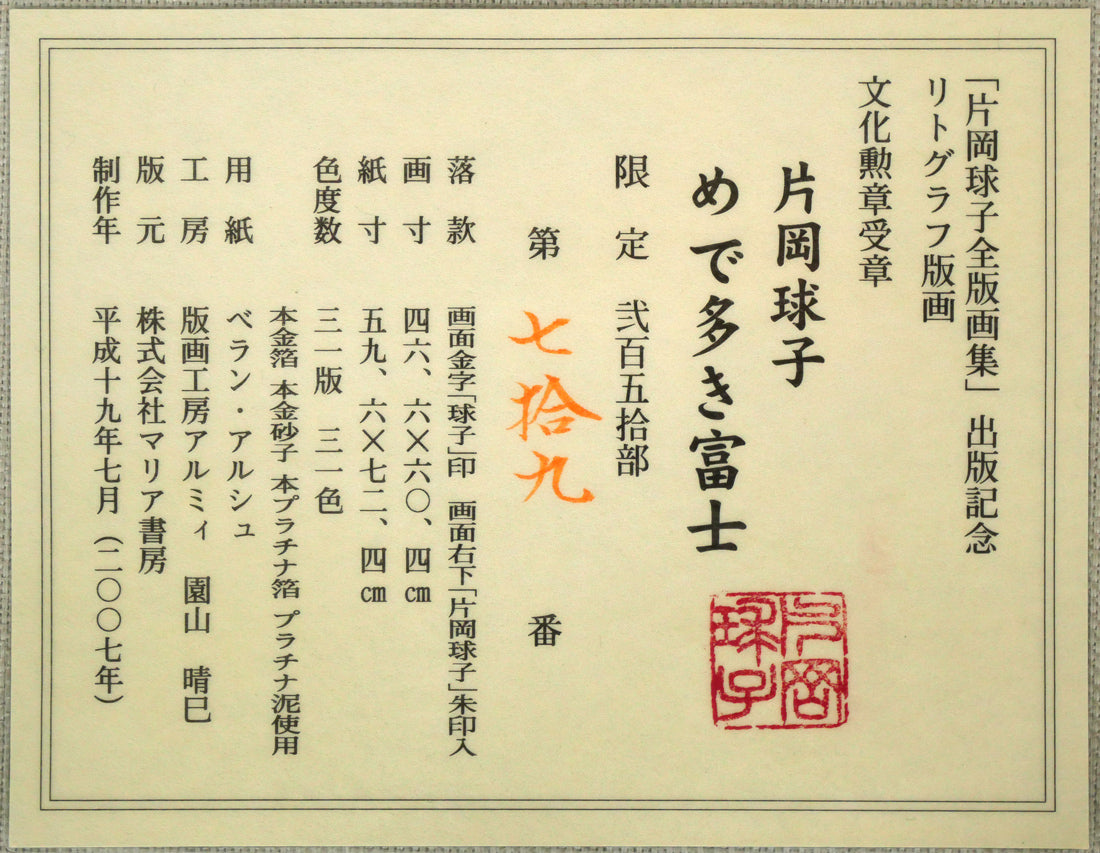 「片岡球子全版画集」 出版記念
リトグラフ版画
文化勲章受章
片岡球子
めで多き富士
限 定 弐百五拾部
第 七拾九 番
落 款 画面金字「球子」印 画面右下「片岡球子」朱印入
画 寸 四六、六×六〇、四㎝
紙 寸 五九、六×七二、四㎝
色度数 三一版 三一色
本金箔 本金砂子 本プラチナ箔 プラチナ泥使用
用 紙 ベラン・アルシュ
工 房 版画工房アルミィ 園山 晴巳
版 元 株式会社マリア書房
制作年 平成十九年七月(二〇〇七年)
片岡球子